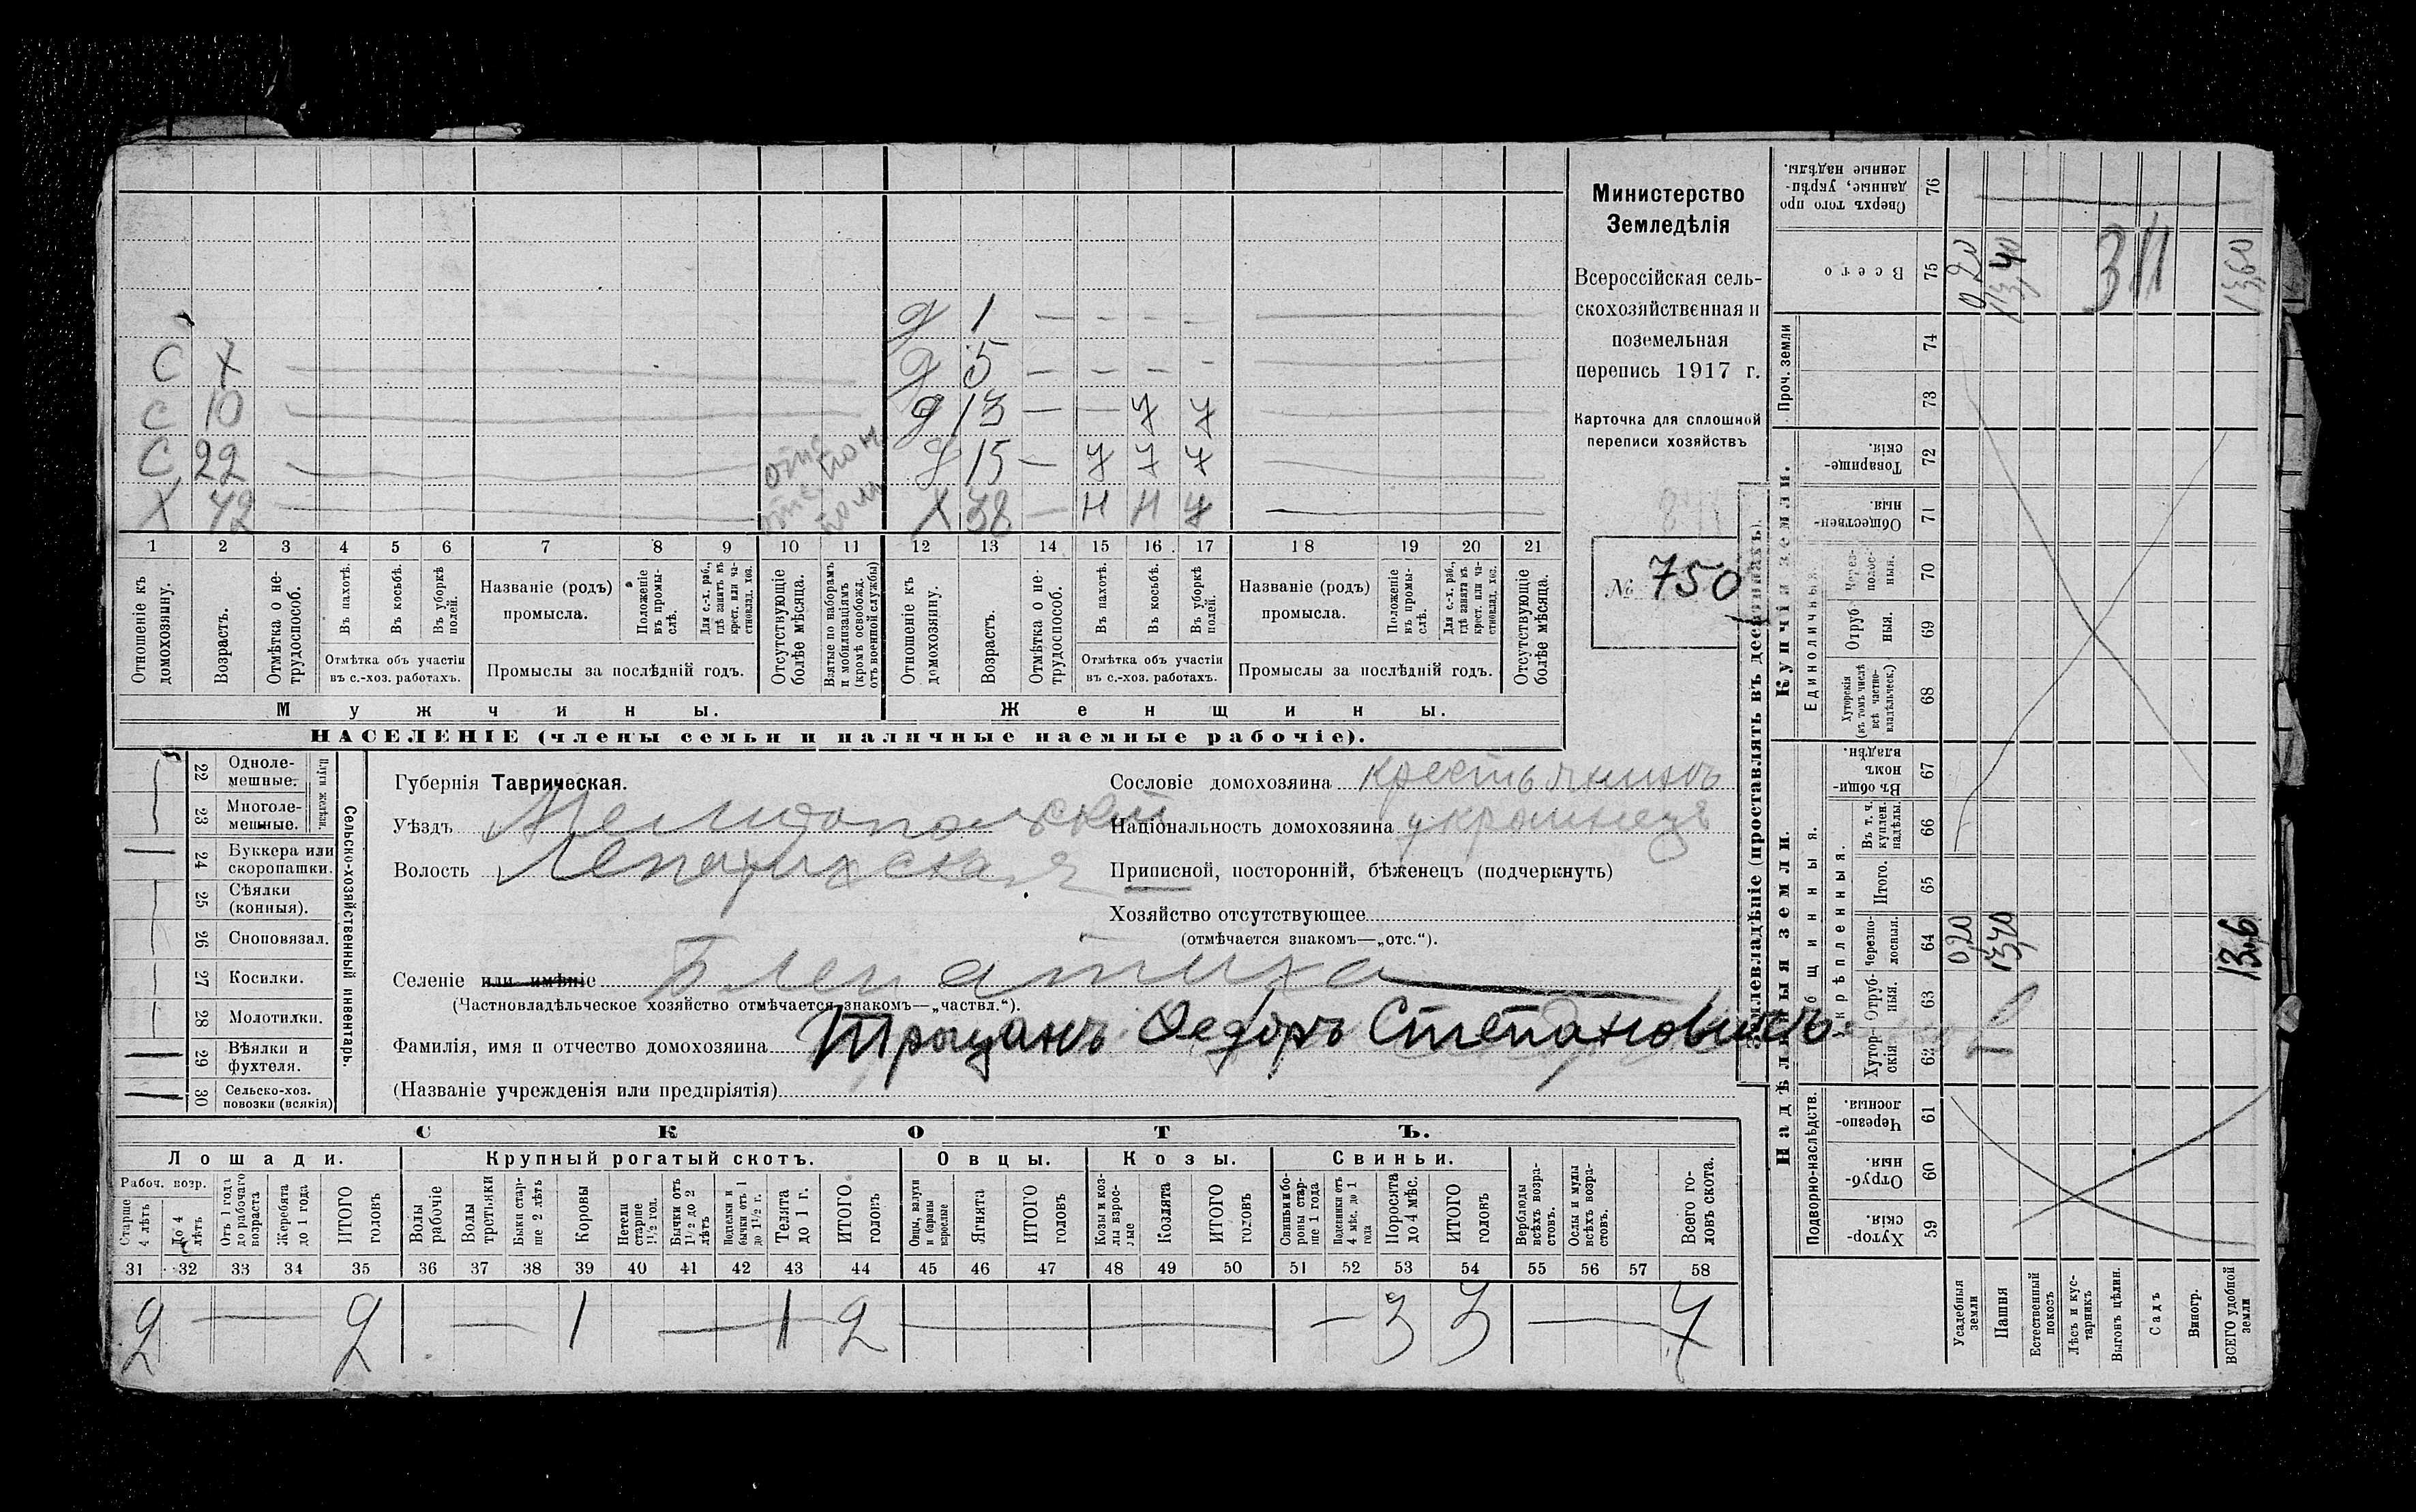 С 7
С 10
С 22
Х 42
д 1 — - - -
д 5 — — — -
д 13 — — 7 7
д 15 — 7 7 7
Х 38 — н н 7
1 2 3 4 5 6 7 8 9 10 11 12 13 14 15 16 17 18 19 20 21
Отношеніе къ домохозяину.
Возрастъ.
Отмѣтка о не-трудоспособ.
Въ пахотѣ.
Въ косьбѣ.
Въ уборкѣ полей.
Отмѣтка объ участіи
въ с.-хоз. работахъ.
Названіе (родъ)
промысла.
Положеніе въ промы-слѣ.
Для с.-х. раб., гдѣ занятъ въ крест. или ча-стновлад. хоз.
Промыслы за послѣдній годъ.
Отсутствующіе болѣе мѣсяца.
Взятые по наборамъ и мобилизаціямъ (кромѣ освобожд. отъ военной службы)
Отношеніе къ домохозяину.
Возрастъ.
Отмѣтка о не-трудоспособ.
Въ пахотѣ.
Въ косьбѣ.
Въ уборкѣ полей.
Отмѣтка объ участіи
въ с.-хоз. работахъ.
Названіе (родъ)
промысла.
Положеніе въ промы-слѣ.
Для с.-х. раб., гдѣ занята въ крест. или ча-стновлад. хоз.
Промыслы за послѣдній годъ.
Отсутствующіе болѣе мѣсяца.
Мужчины.
Женщины.
НАСЕЛЕНІЕ (члены семьи и наличные наемные рабочіе).
Министерство
Земледѣлія
Всероссійская сель-
скохозяйственная и
поземельная
перепись 1917 г.
Карточка для сплошной
переписи хозяйствъ
№ 750
22 Одноле-мешные.
23 Многоле-мешные.
Плуги желѣзн.
24 Буккера или скоропашки.
25 Сѣялки (конныя).
26 Сноповязал.
27 Косилки.
28 Молотилки.
29 Вѣялки и фухтеля.
30 Сельско-хоз. повозки (всякія)
Сельско-хозяйственный инвентарь.
Губернія Таврическая.
Уѣздъ Мелитопольскій
Волость Лепатихская
Сословіе домохозяина крестьянинъ
Національность домохозяина украинецъ
Приписной, посторонній, бѣженецъ (подчеркнуть)
Хозяйство отсутствующее
(отмѣчается знакомъ—„отс.“).
Селеніе или имѣніе Б Лепатиха
(Частновладѣльческое хозяйство отмѣчается знакомъ—„частвл.“).
Фамилія, имя и отчество домохозяина Трыцанъ Федоръ Степановичъ
(Названіе учрежденія или предпріятія)
СКОТЪ.
Лошади.
Крупный рогатый скотъ.
Овцы.
Козы.
Свиньи.
Рабоч. возр.
Старше 4 лѣтъ
До 4 лѣтъ
Отъ 1 года до рабочаго возраста
Жеребята до 1 года
ИТОГО головъ
Волы рабочіе
Волы третьяки
Быки стар-ше 2 лѣтъ
Коровы
Нетели старше 1½ год.
Бычки отъ 1½ до 2 лѣтъ
Подтелки и бычки отъ 1 до 1½ г.
Телята до 1 г.
ИТОГО головъ
Овцы, валухи и бараны взрослые
Ягнята
ИТОГО головъ
Козы и коз-лы взрос-лые
Козлята
ИТОГО головъ
Свиньи и бо-ровы стар-ше 1 года
Подсвинки отъ 4 мѣс. до 1 года
Поросята до 4 мѣс.
ИТОГО головъ
Верблюды всѣхъ возра-стовъ.
Ослы и мулы всѣхъ возра-стовъ.
Всего го-ловъ скота.
31 32 33 34 35 36 37 38 39 40 41 42 43 44 45 46 47 48 49 50 51 52 53 54 55 56 57 58
2 — 2 — 1 — 1 2 — — — — 3 3 — 7
Землевладѣніе (проставлять въ десятинахъ).
Надѣльныя земли.
Купчія земли.
Проч. земли
Подворно-наслѣдств.
Общинныя.
Укрѣпленныя.
Единоличныя.
Хутор-скія 59
Отруб-ныя 60
Черезпо-лосныя 61
Хутор-скія 62
Отруб-ныя. 63
Черезпо-лосныя. 64
Итого. 65
Въ т. ч. куплен. надѣлы. 66
Въ общи-номъ владѣн. 67
Хуторскія (въ томъ числѣ всѣ частно-владѣльческ.) 68
Отруб-ныя. 69
Через-полос-ныя. 70
Обществен-ныя. 71
Товарище-скія. 72
73
74
Всего 75
Сверхъ того про-данные, укрѣп-ленные надѣлы. 76
Усадебныя земли 0,20 0,20
Пашня 13,40 13,40
Естественный покосъ
Лѣсъ и кус-тарникъ
Выгонъ цѣлин.
Садъ
Виногр.
ВСЕГО удобной земли 13,6 13,60
311